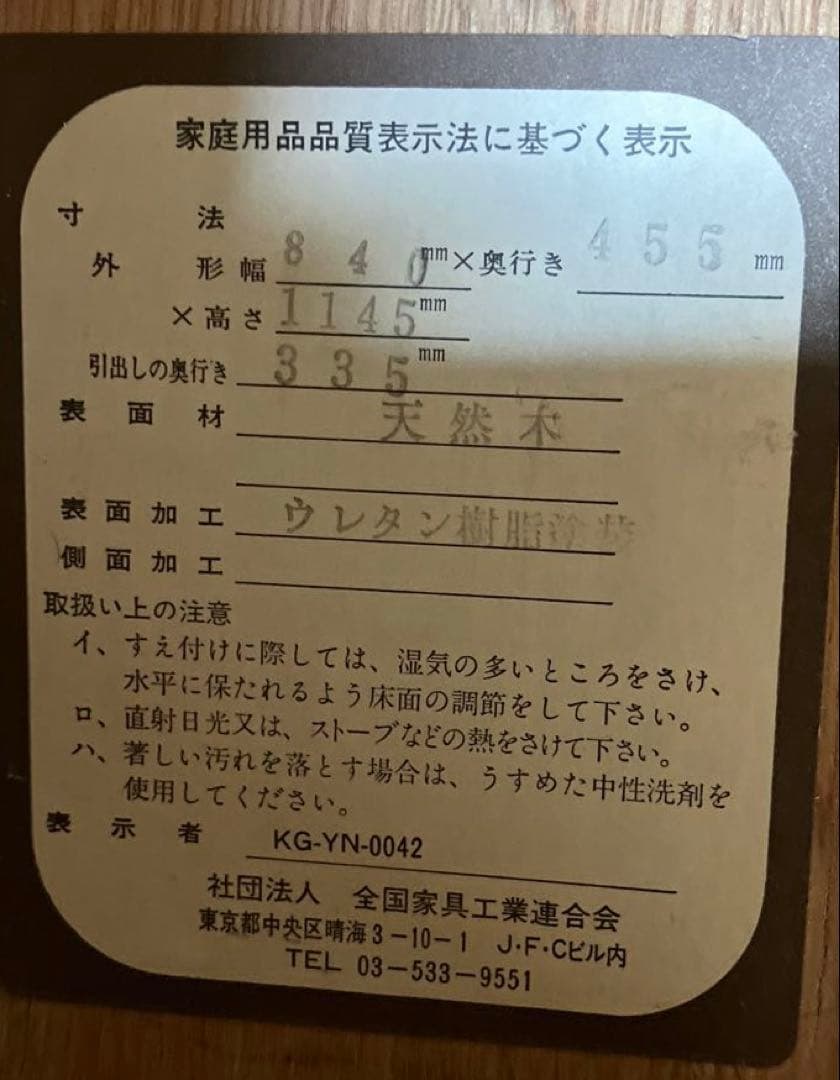 家庭用品品質表示法に基づく表示
寸法
外形幅 840mm×奥行き 455mm
×高さ 1145mm
引出しの奥行き 335mm
表面材 天然木
表面加工 ウレタン樹脂塗装
側面加工
取扱い上の注意
イ、すえ付けに際しては、湿気の多いところをさけ、
水平に保たれるよう床面の調節をして下さい。
ロ、直射日光又は、ストーブなどの熱をさけて下さい。
ハ、著しい汚れを落とす場合は、うすめた中性洗剤を
使用してください。
表示者 KG-YN-0042
社団法人 全国家具工業連合会
東京都中央区晴海3-10-1 J・F・Cビル内
TEL 03-533-9551